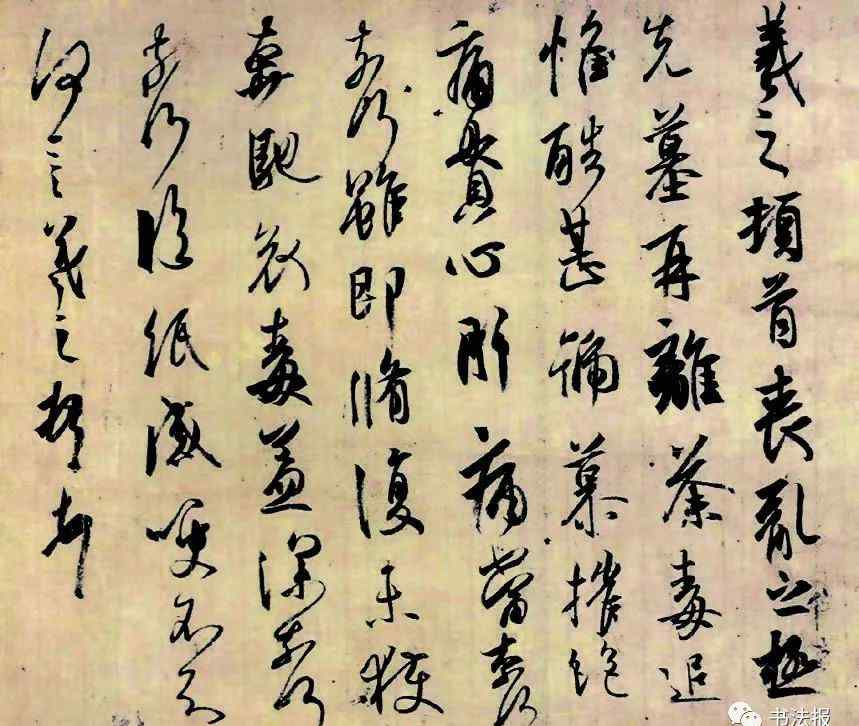 羲之頓首喪亂之極
先墓再離荼毒追
惟酷甚號慕摧絕
痛貫心肝痛當奈何
奈何雖即脩復未獲
奔馳哀毒益深奈何
奈何臨紙感哽不知
何言羲之頓首頓首
书法报